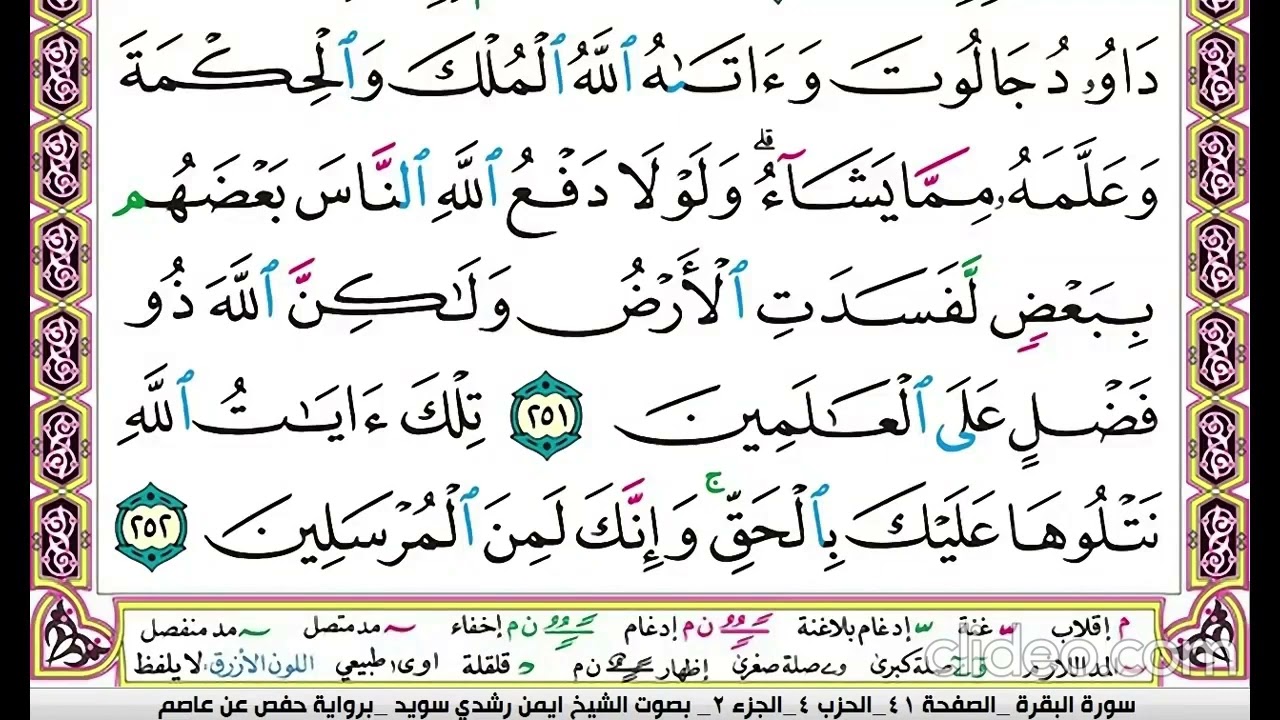 دَاوُۥدُ جَالُوتَ وَءَاتَىٰهُ ٱللَّهُ ٱلْمُلْكَ وَٱلْحِكْمَةَ
وَعَلَّمَهُۥ مِمَّا يَشَآءُ ۗ وَلَوْلَا دَفْعُ ٱللَّهِ ٱلنَّاسَ بَعْضَهُم
بِبَعْضٍ لَّفَسَدَتِ ٱلْأَرْضُ وَلَـٰكِنَّ ٱللَّهَ ذُو
فَضْلٍ عَلَى ٱلْعَـٰلَمِينَ ٢٥١ تِلْكَ ءَايَـٰتُ ٱللَّهِ
نَتْلُوهَا عَلَيْكَ بِٱلْحَقِّ ۚ وَإِنَّكَ لَمِنَ ٱلْمُرْسَلِينَ ٢٥٢
م إقلاب غنة إدغام بلاغنة ن م إدغام ن م إخفاء مد متصل مد منفصل
المد اللازم صلة كبرى و ے صلة صغرى إظهار ن م د قلقلة اوى طبيعي اللون الأزرق لا يلفظ
clideo.com
سورة البقرة _الصفحة ٤١_الحزب ٤_الجزء ٢_ بصوت الشيخ ايمن رشدي سويد _برواية حفص عن عاصم